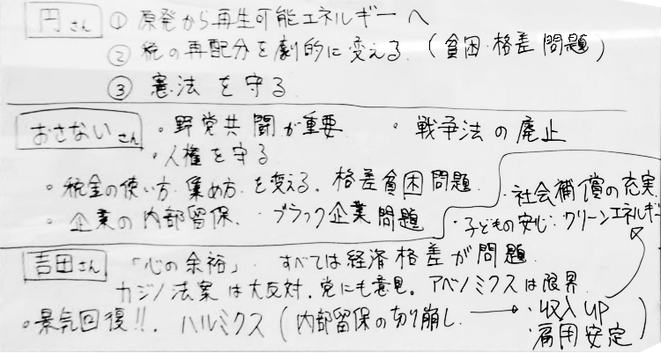 円さん ① 原発から再生可能エネルギーへ
② 税の再配分を劇的に変える.(貧困・格差問題)
③ 憲法を守る.
おさないさん ・野党共闘が重要 ・戦争法の廃止
・人権を守る
・税金の使い方.集め方.を変える.格差貧困問題.
・企業の内部留保.・ブラック企業問題
・社会補償の充実.
・子どもの安心.クリーンエネルギー
吉田さん 「心の余裕」.すべては経済格差が問題.
カジノ法案は大反対.党にも意見。アベノミクスは限界.
・景気回復!!.ハルミクス(内部留保の切り崩し. → ・収入UP
・雇用安定)